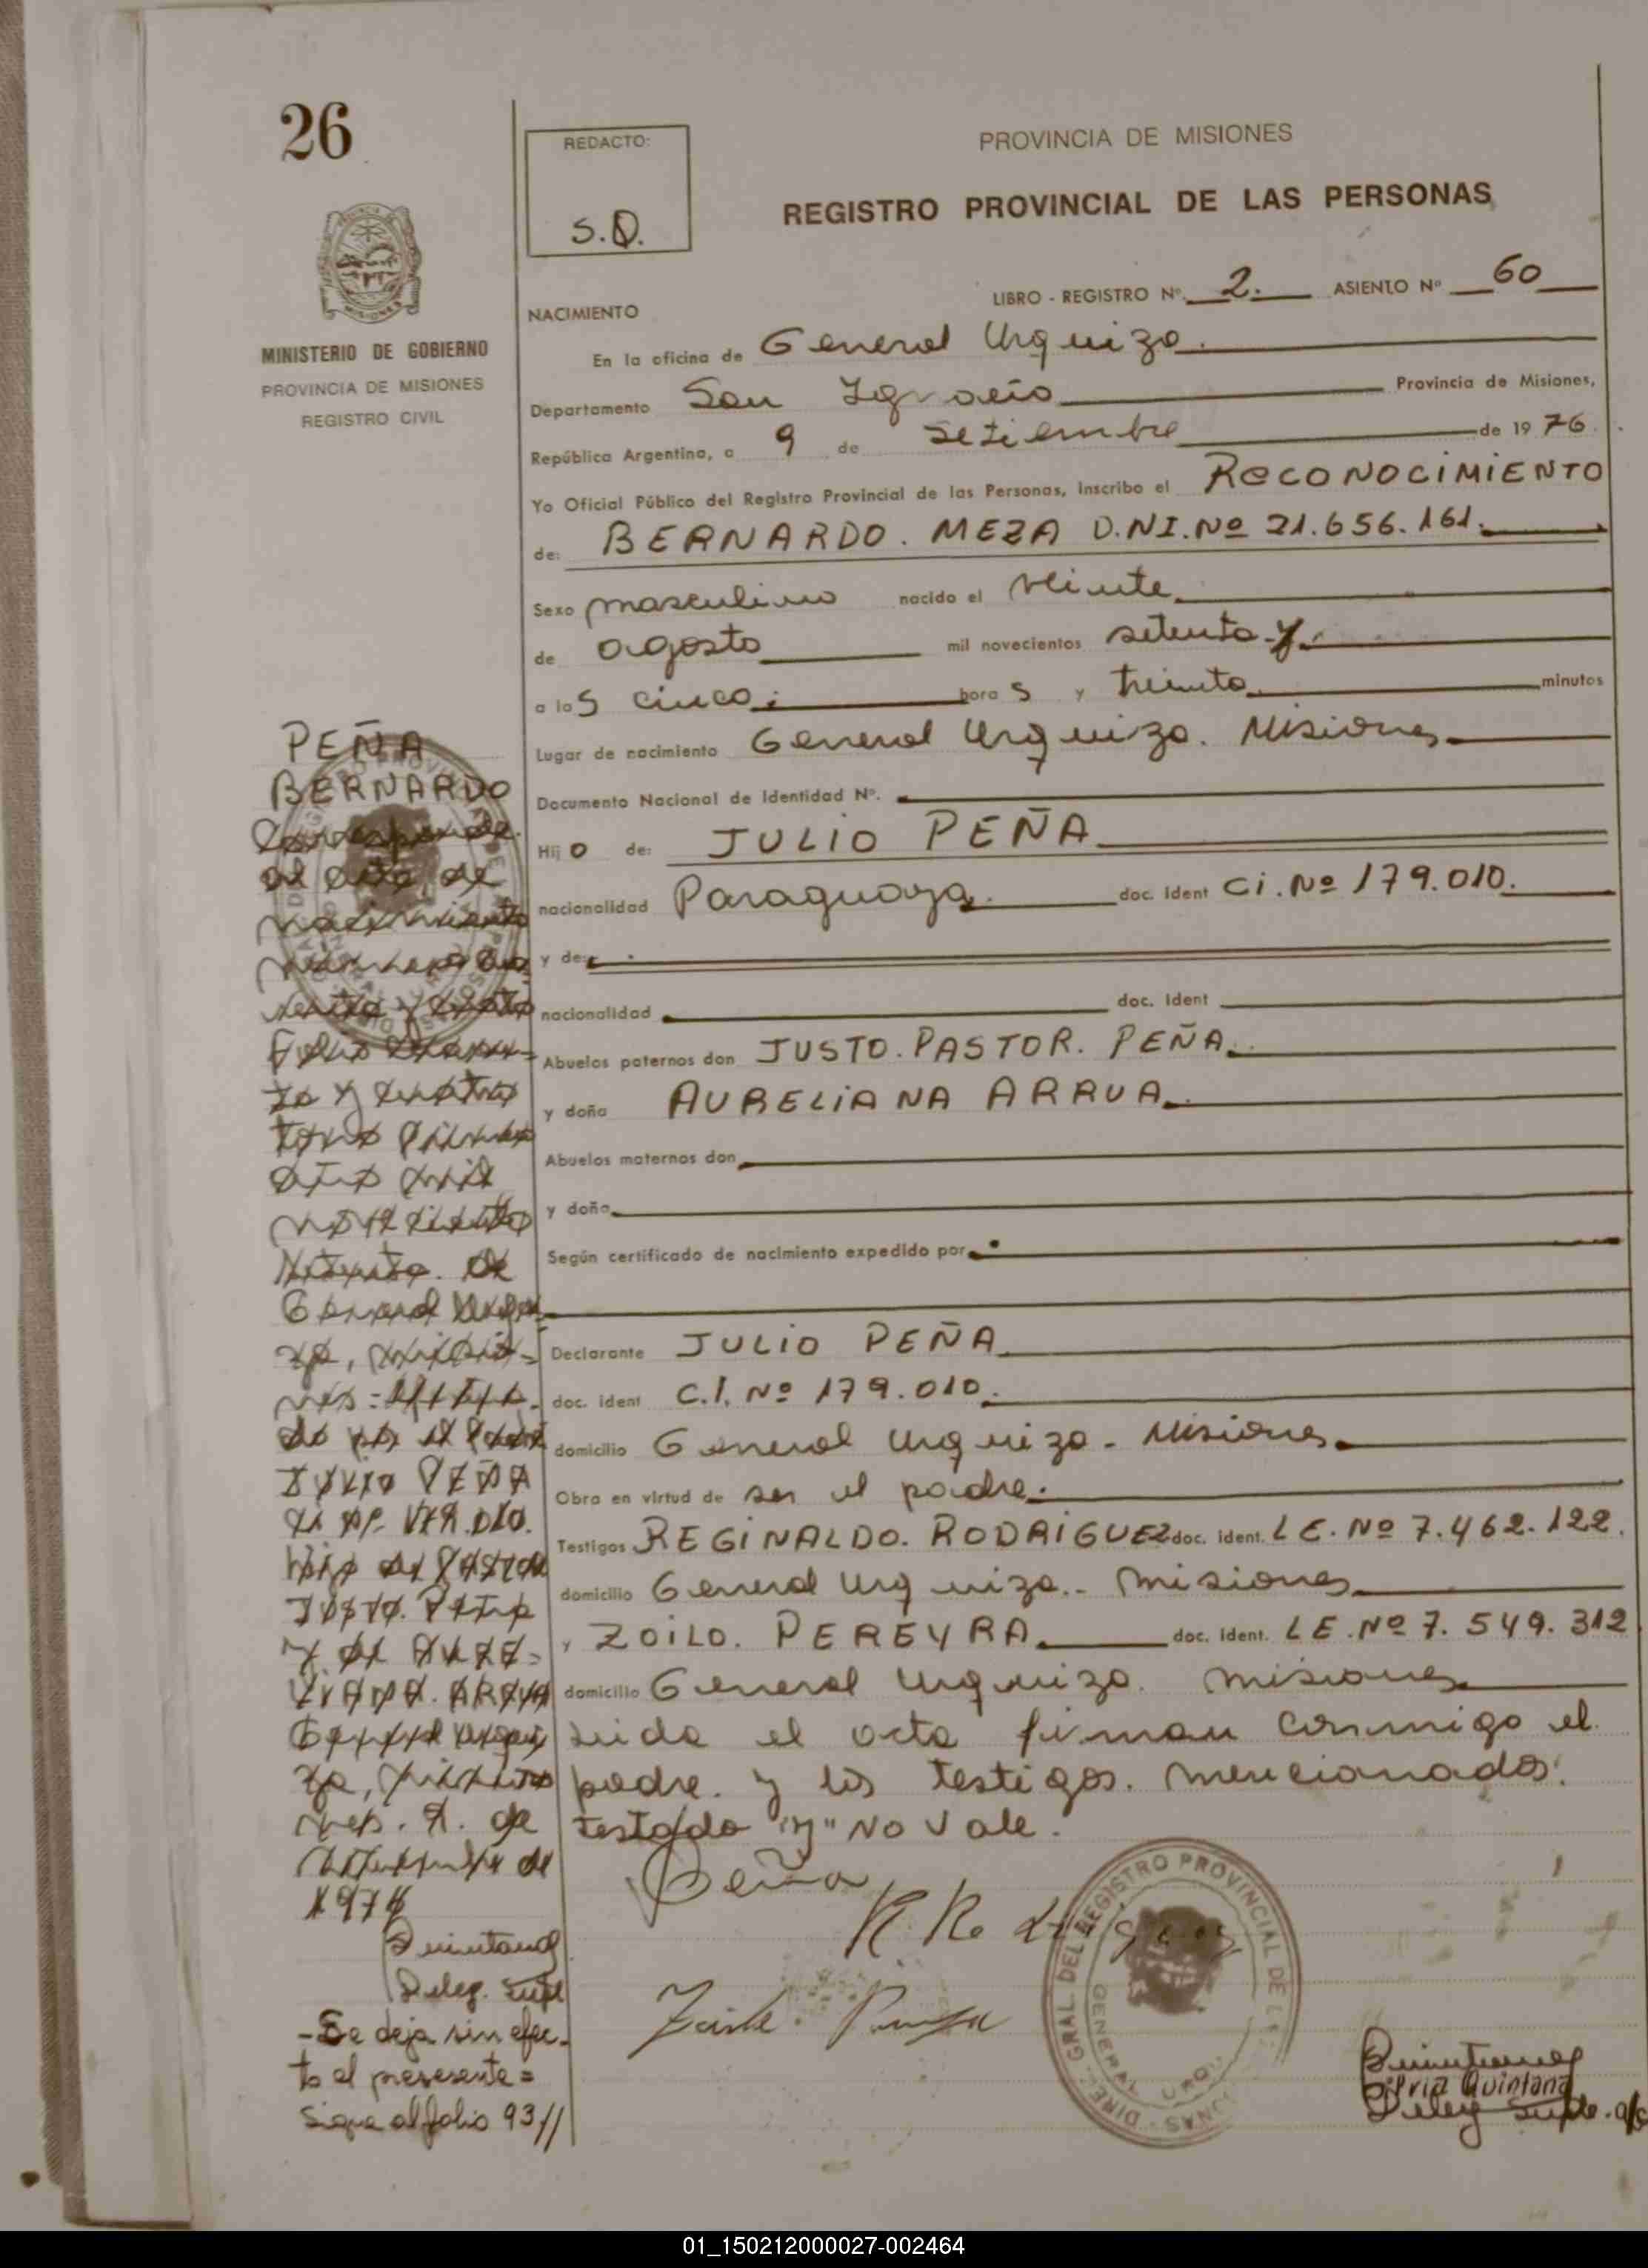 26
REDACTO:
S.Q.
PROVINCIA DE MISIONES
REGISTRO PROVINCIAL DE LAS PERSONAS
MINISTERIO DE GOBIERNO
PROVINCIA DE MISIONES
REGISTRO CIVIL
LIBRO - REGISTRO Nº 2. ASIENTO Nº 60
NACIMIENTO
En la oficina de General Urquiza.
Departamento San Ignacio Provincia de Misiones,
República Argentina, a 9 de Setiembre de 1976.
Yo Oficial Público del Registro Provincial de las Personas, Inscribo el RECONOCIMIENTO
de: BERNARDO. MEZA D.NI.Nº 21.656.161.
Sexo masculino nacido el veinte
de agosto mil novecientos setenta y
a las cinco horas y treinta minutos
Lugar de nacimiento General Urquiza. Misiones
Documento Nacional de Identidad Nº.
Hijo de: JULIO PEÑA
nacionalidad Paraguaya. doc. ident Ci. Nº 179.010.
y de:
nacionalidad doc. Ident
Abuelos paternos don JUSTO. PASTOR. PEÑA.
y doña AURELIANA ARRUA.
Abuelos maternos don
y doña
Según certificado de nacimiento expedido por
Declarante JULIO PEÑA
doc. ident C.I. Nº 179.010.
domicilio General Urquiza - Misiones
Obra en virtud de ser el padre.
Testigos REGINALDO. RODRIGUEZ doc. ident. LE. Nº 7.462.122.
domicilio General Urquiza.- Misiones
y ZOILO. PEREYRA doc. Ident. LE. Nº 7.549.312
domicilio General Urquiza. Misiones
Leida el acta firman conmigo el
padre. y los testigos. mencionados.
testado "y" No Vale.
Peña
PEÑA
BERNARDO
Corresponde
al acta de
nacimiento
General Urqui
za, Misio-
nes =
do por el Padre
JULIO PEÑA
179.010.
hijo de PASTOR
JUSTO. PEÑA
y de AURE=
LIANA. ARRUA
General Urqui
za, Misio
nes. 9. de
setiembre de
1976
Quintana
Deleg. Supl
-Se deja sin efec-
to el presesente =
Sigue al folio 93//
DIREC. GRAL. DEL REGISTRO PROVINCIAL DE
GENERAL URQU
Silvia Quintana
Deleg Suple. a/c
01_150212000027-002464